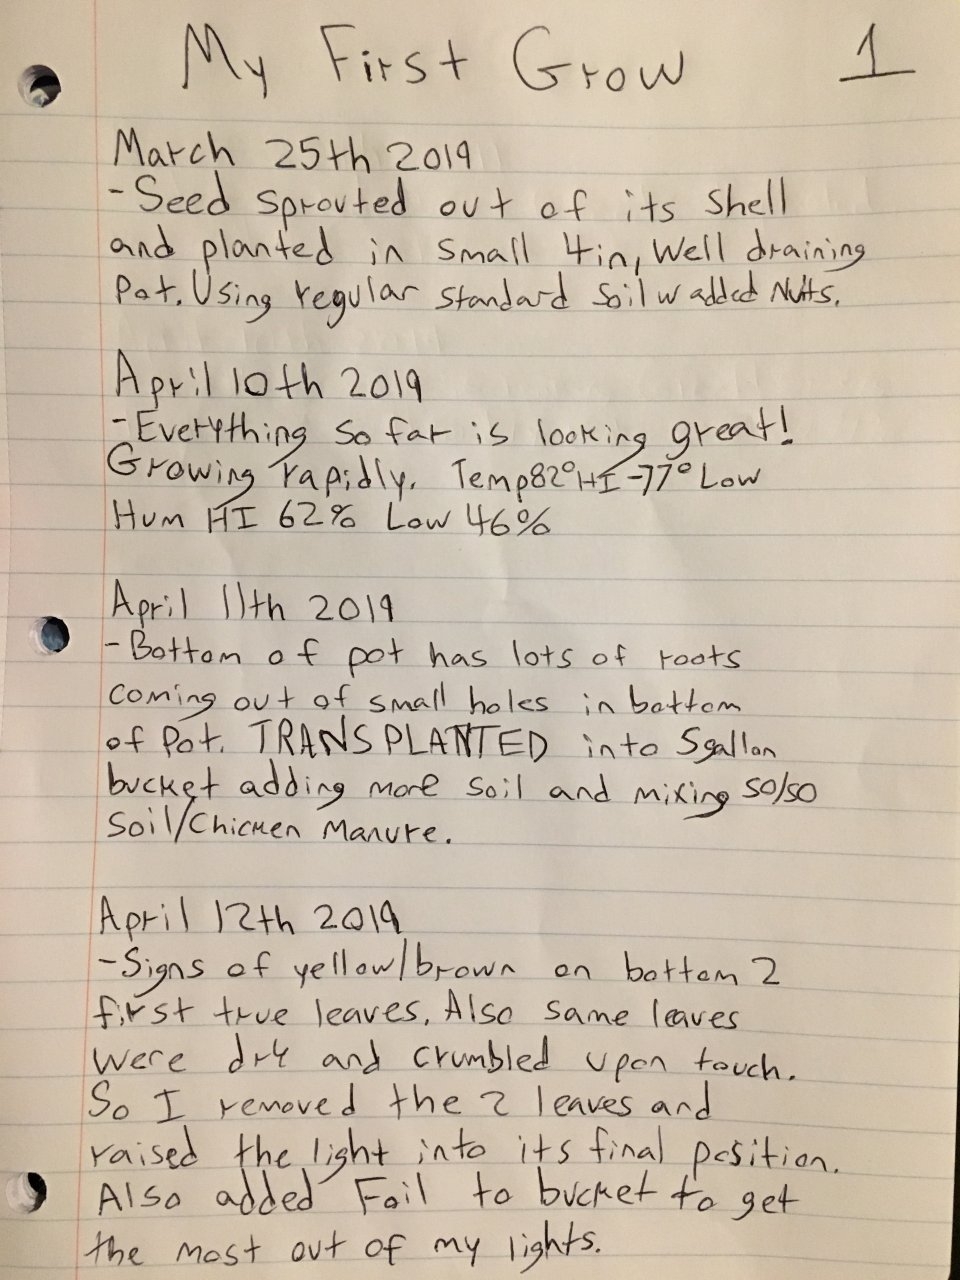 My First Grow 1
March 25th 2019
-Seed sprouted out of its shell
and planted in small 4in, Well draining
Pot. Using regular standard soil w added Nutts.
April 10th 2019
-Everything so far is looking great!
Growing rapidly. Temp82°HI-77°Low
Hum HI 62% Low 46%
April 11th 2019
-Bottom of pot has lots of roots
coming out of small holes in bottom
of Pot. TRANSPLANTED into 5gallon
bucket adding more soil and mixing 50/50
Soil/Chicken Manure.
April 12th 2019
-Signs of yellow/brown on bottom 2
first true leaves. Also same leaves
were dry and crumbled upon touch.
So I removed the 2 leaves and
raised the light into its final position.
Also added Foil to bucket to get
the most out of my lights.